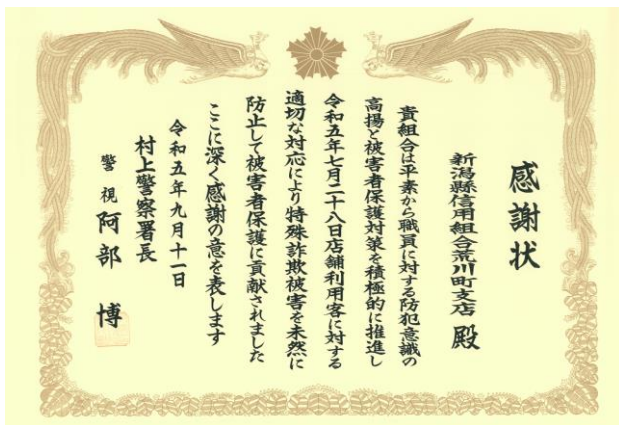 感謝状
新潟縣信用組合荒川町支店 殿
貴組合は平素から職員に対する防犯意識の
高揚と被害者保護対策を積極的に推進し
令和五年七月二十八日店舗利用客に対する
適切な対応により特殊詐欺被害を未然に
防止して被害者保護に貢献されました
ここに深く感謝の意を表します
令和五年九月十一日
村上警察署長
警視 阿部 博